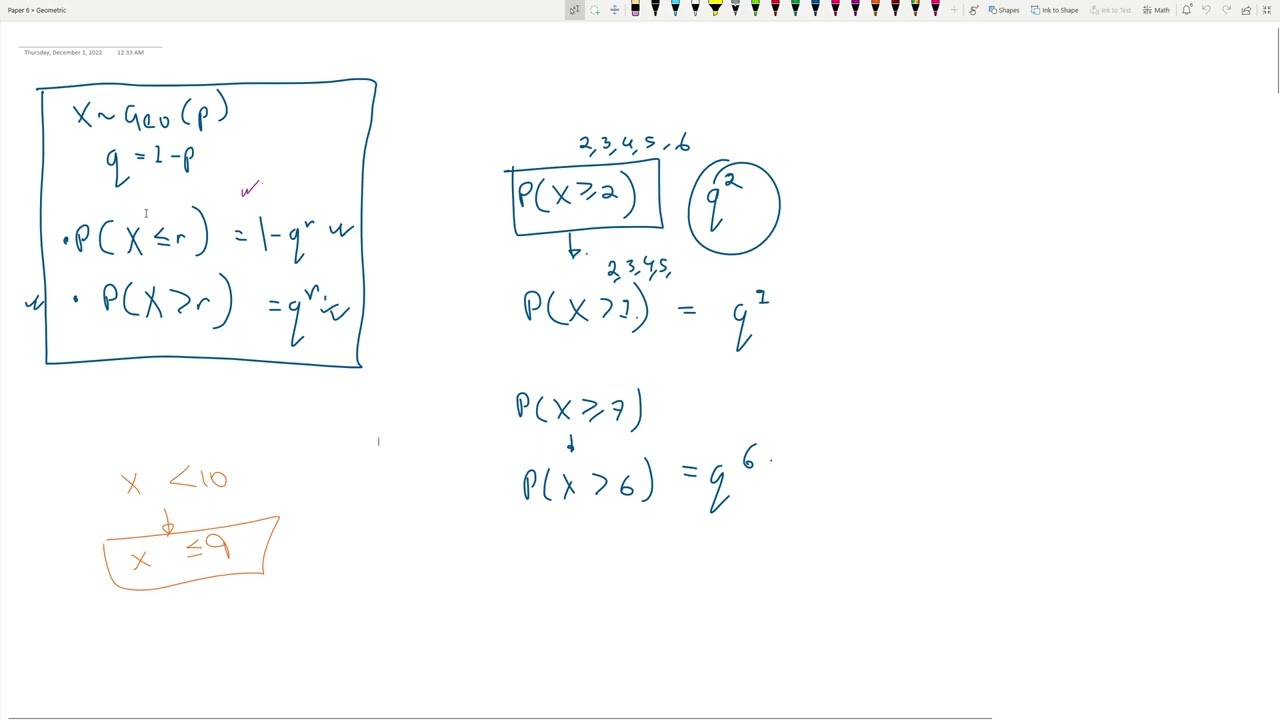 Paper 6 » Geometric
Shapes
Ink to Shape
Ink to Text
Math
Thursday, December 1, 2022 12:33 AM
X ~ Geo (p)
q = 1 - p
• P(X ≤ r) = 1 - q^r
• P(X > r) = q^r
x < 10
↓
x ≤ 9
2, 3, 4, 5, 6
P(X ≥ 2) q^2
↓
2, 3, 4, 5,
P(X > 1) = q^1
P(X ≥ 7)
↓
P(X > 6) = q^6